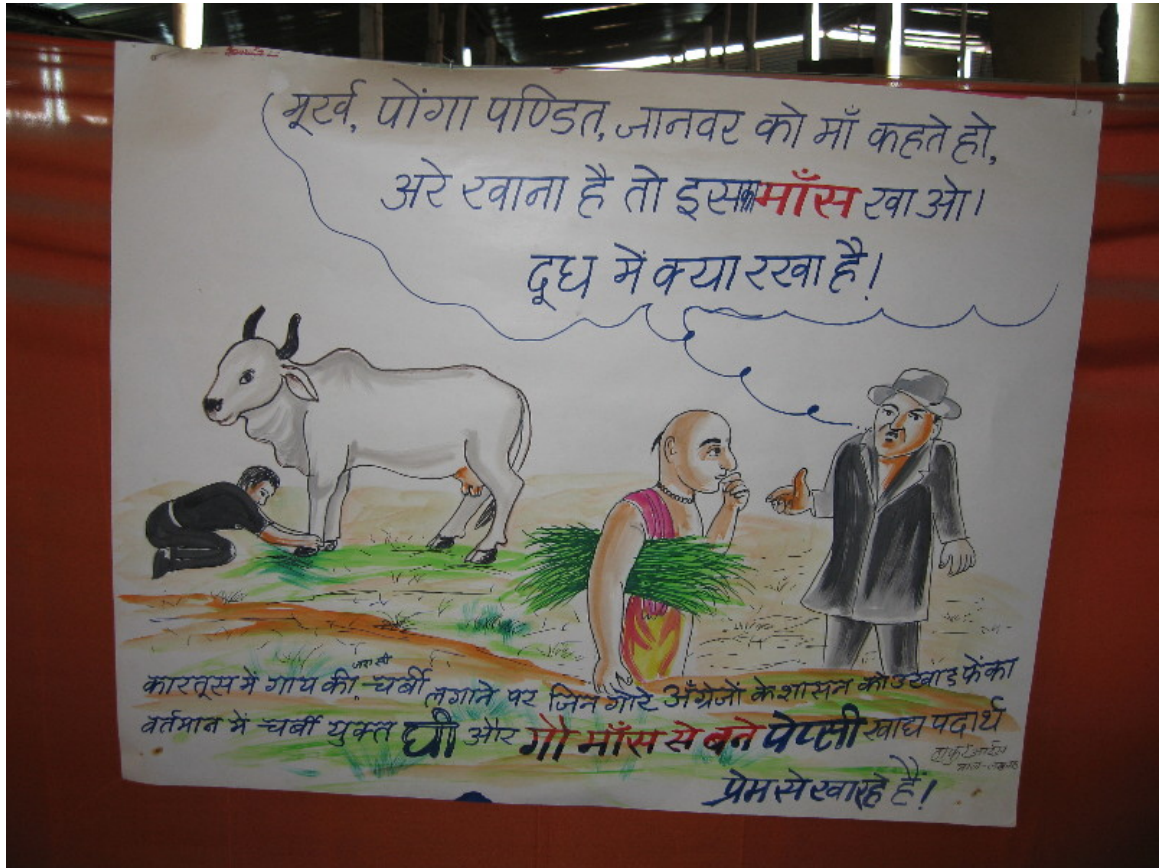 मूर्ख, पोंगा पण्डित, जानवर को माँ कहते हो,
अरे खाना है तो इसका माँस खाओ।
दूध में क्या रखा है!
कारतूस में गाय की जरा सी चर्बी लगाने पर जिन गोरे अँग्रेजों के शासन को उखाड फेंका
वर्तमान में चर्बी युक्त घी और गौ माँस से बने पेप्सी खाद्य पदार्थ
प्रेम से खा रहे हैं!